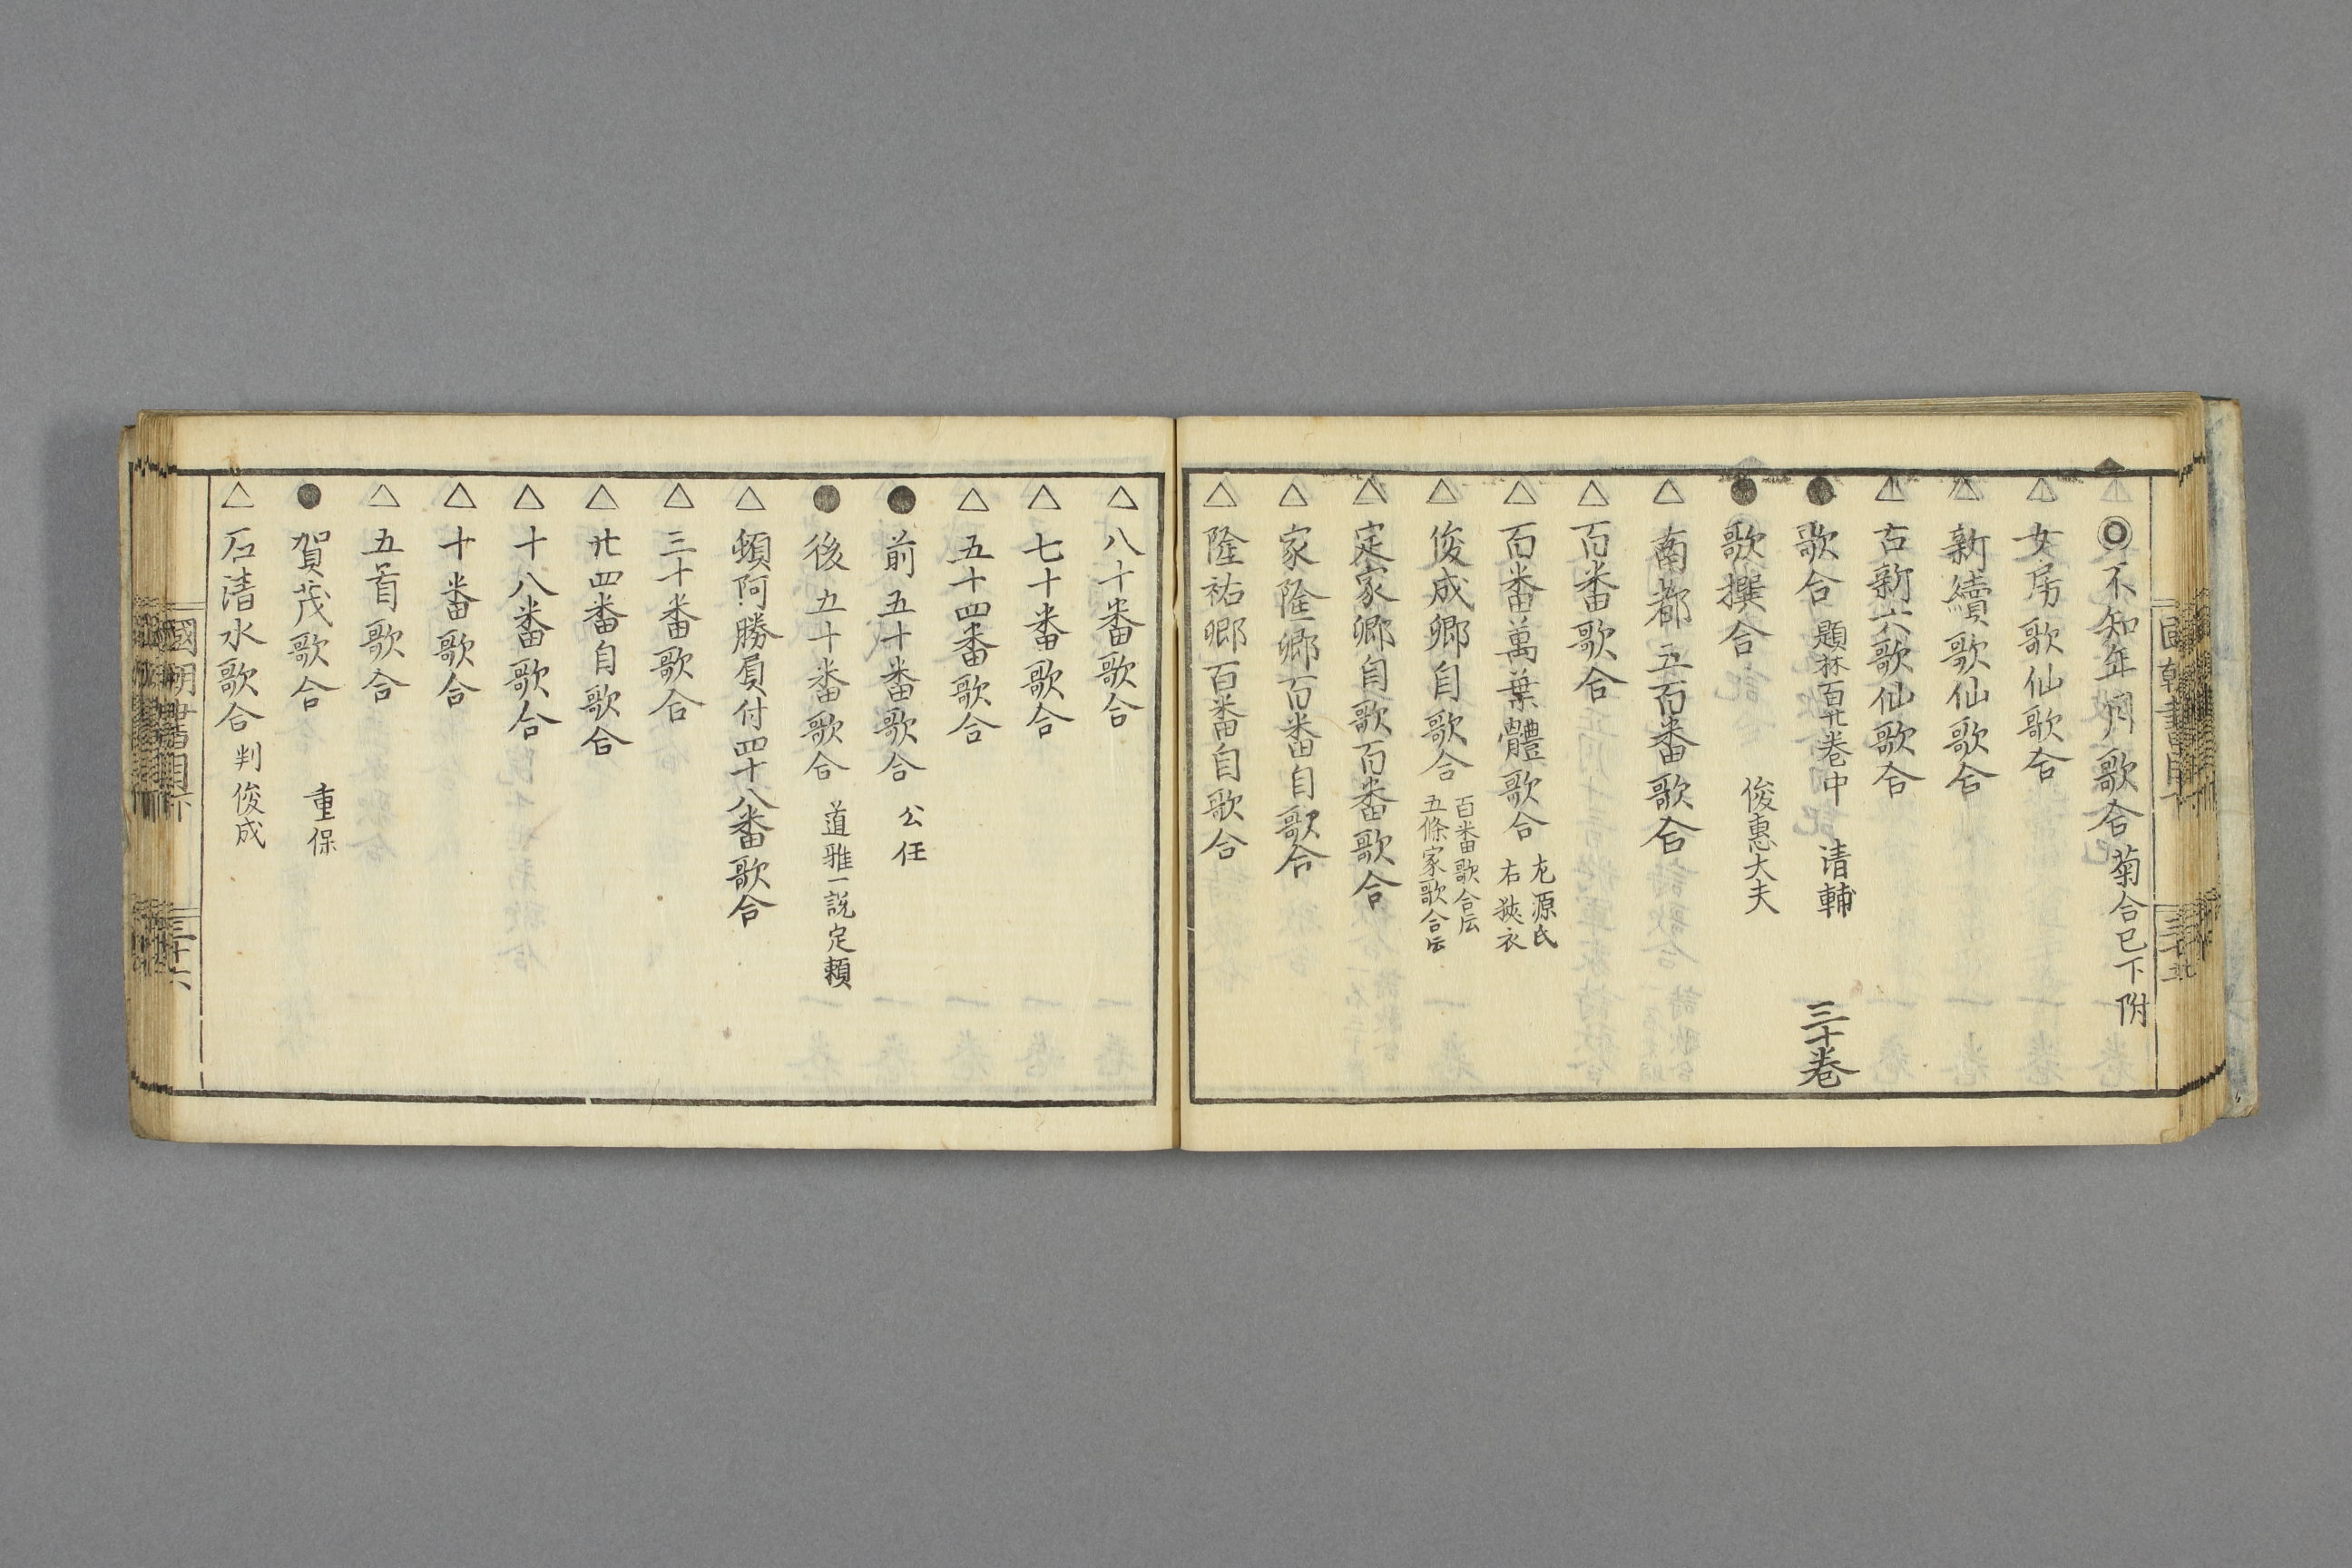 ◎不知年月歌合菊合已下附
△女房歌仙歌合
△新續歌仙歌合
△古新六歌仙歌合
●歌合題林百廿巻中 清輔 三十巻
●歌撰合 俊惠大夫
△南都五百番歌合
△百番歌合
△百番萬葉體歌合
左源氏
右狹衣
△俊成卿自歌合
百番歌合伝
五條家歌合伝
△定家卿自歌百番歌合
△家隆卿百番自歌合
△隆祐卿百番自歌合
△八十番歌合
△七十番歌合
△五十四番歌合
●前五十番歌合 公任
●後五十番歌合 道雅一説定頼
△頓阿勝負付四十八番歌合
△三十番歌合
△廿四番自歌合
△十八番歌合
△十番歌合
△五首歌合
●賀茂歌合 重保
△石清水歌合判俊成
國朝書目下
三十六